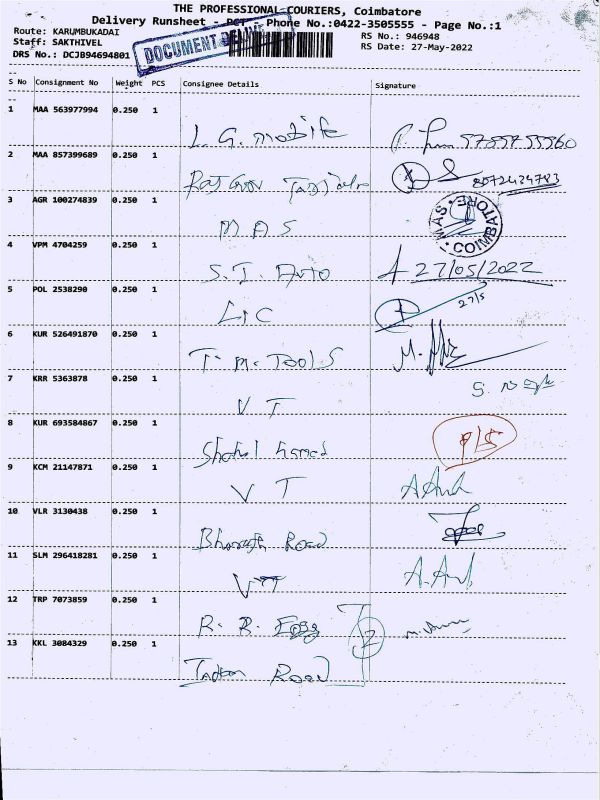 THE PROFESSIONAL COURIERS, Coimbatore
Delivery Runsheet - DCT - Phone No.:0422-3505555 - Page No.:1
Route: KARUMBUKADAI RS No.: 946948
Staff: SAKTHIVEL RS Date: 27-May-2022
DRS No.: DCJB94694801
DOCUMENT
S No Consignment No Weight PCS Consignee Details Signature
1 MAA 563977994 0.250 1
L. G. mobile
2 MAA 857399689 0.250 1
3 AGR 100274839 0.250 1
MAS
MAS COIMBATORE
4 VPM 4704259 0.250 1
S. I. Auto 27/05/2022
5 POL 2538290 0.250 1
LIC 27/5
6 KUR 526491870 0.250 1
T. M. TOOLS
7 KRR 5363878 0.250 1
V T
8 KUR 693584867 0.250 1
9 KCM 21147871 0.250 1
V T
10 VLR 3130438 0.250 1
Road
11 SLM 296418281 0.250 1
VTT
12 TRP 7073859 0.250 1
R. R. Eggs
13 KKL 3084329 0.250 1
Road